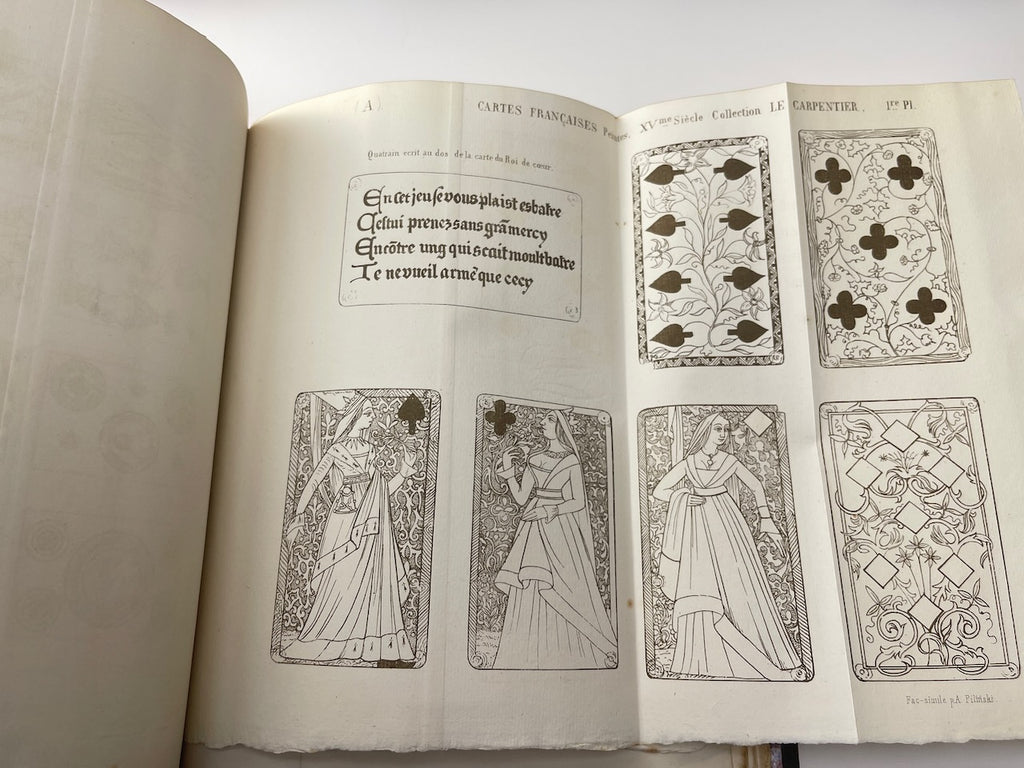 (A)
CARTES FRANÇAISES Peintes. XVme Siècle Collection LE CARPENTIER. 1re Pl.
Quatrain ecrit au dos de la carte du Roi de cœur.
En cet jeu se vous plaist esbatre
Cestui prenez sans grã mercy
Encõtre ung qui scait moult batre
Je ne vueil armé que cecy
Fac-simile p.A. Pilinski.